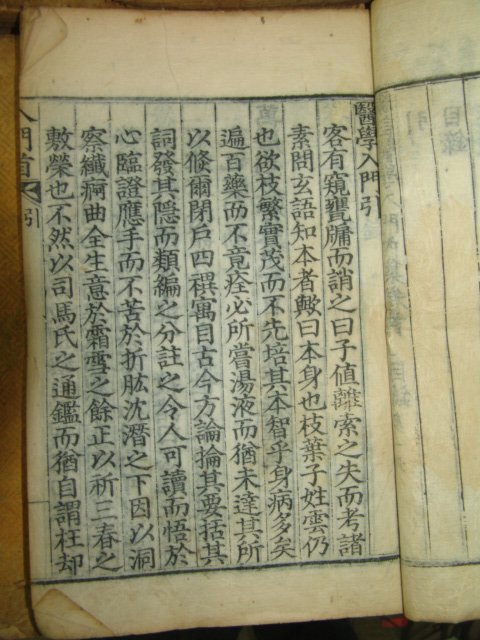 醫學入門引
客有窺甕牖而誚之曰子值離索之失而考諸
素問玄語知本者歟曰本身也枝葉子姓雲仍
也欲枝繁實茂而不先培其本智乎身病多矣
遍百藥而不竟痊必所嘗湯液而猶未達其所
以倐爾閉戶四禩寓目古今方論掄其要括其
詞發其隱而類編之分註之令人可讀而悟於
心臨證應手而不苦於折肱沈潛之下因以洞
察纖痾曲全生意於霜雪之餘正以祈三春之
敷榮也不然以司馬氏之通鑑而猶自謂枉却
入門首 引